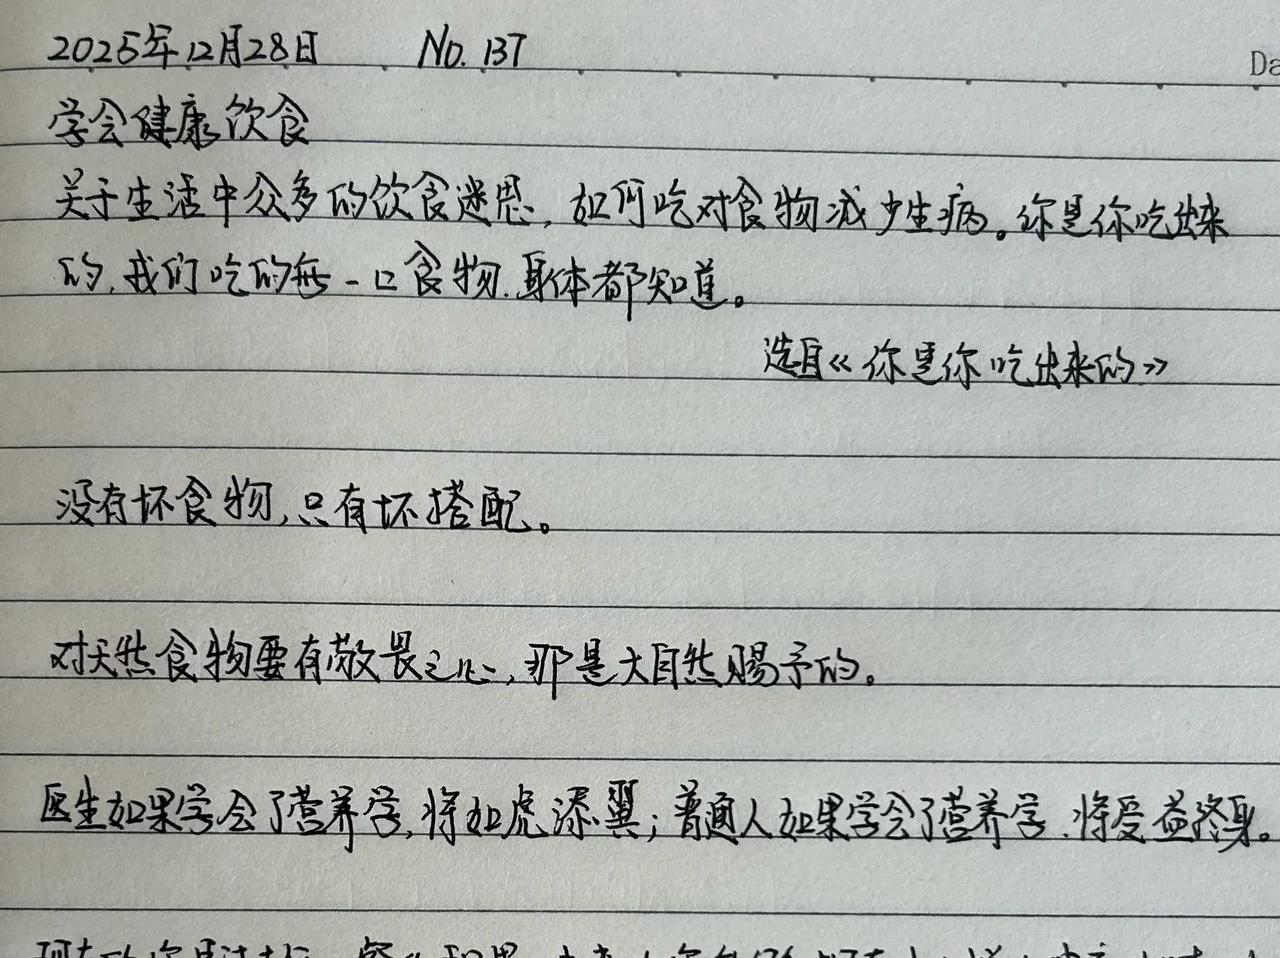 2025年12月28日 No. 137
Da
学会健康饮食
关于生活中众多的饮食迷思,如何吃对食物减少生病。你是你吃出来
的,我们吃的每一口食物.身体都知道。
选自《你是你吃出来的》
没有坏食物,只有坏搭配。
对天然食物要有敬畏之心,那是大自然赐予的。
医生如果学会了营养学,将如虎添翼;普通人如果学会了营养学.将受益终身。